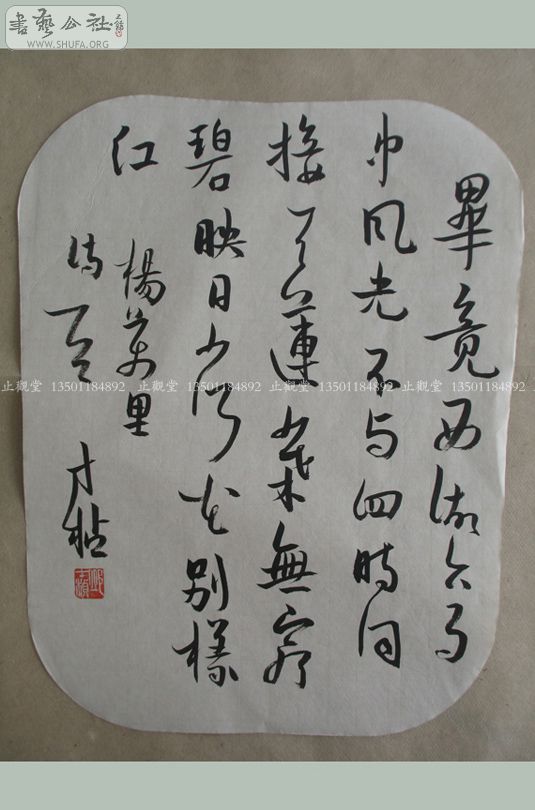 書藝公社
WWW.SHUFA.ORG
畢竟西湖六月
中風光不与四時同
接天蓮葉無窮
碧映日荷花别樣
红
楊万里
詩一首
止觀堂 13501184892 止觀堂 13501184892 止觀堂 13501184892 止觀堂 13501184892